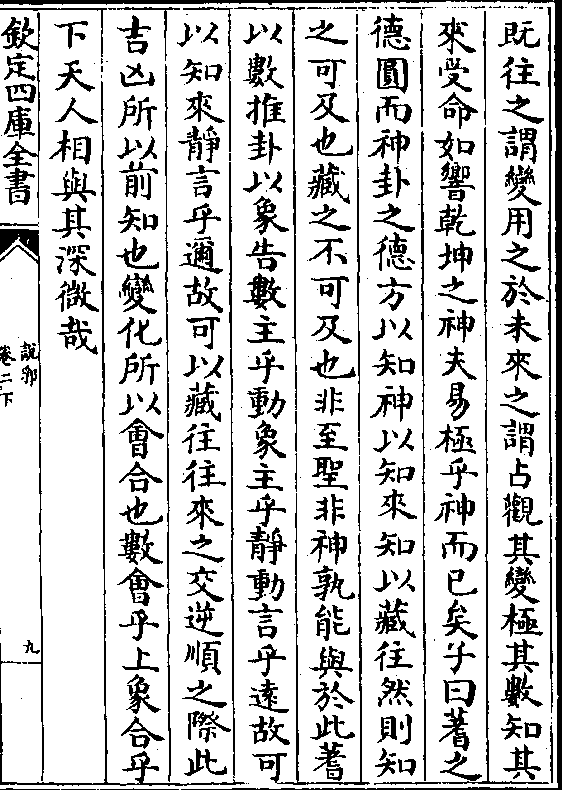 既往之謂變用之於未來之謂占觀其變極其數知其
來受命如響乾坤之神夫易極乎神而已矣子曰蓍之
德圓而神卦之德方以知神以知來知以藏往然則知
之可及也藏之不可及也非至聖非神孰能與於此蓍
以數推卦以象告數主乎動象主乎靜動言乎遠故可
以知來靜言乎邇故可以藏往往來之交逆順之際此
吉凶所以前知也變化所以會合也數會乎上象合乎
下天人相與其深微哉
欽定四庫全書
卷二下
九